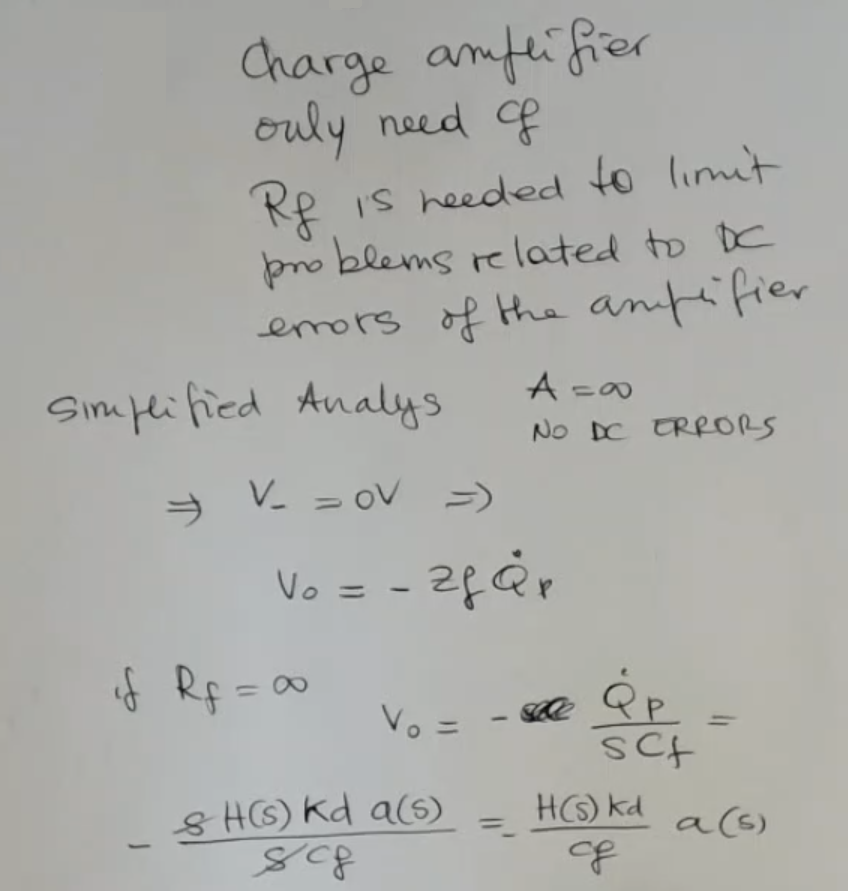 Charge amplifier
only need Cf
Rf is needed to limit
problems related to DC
errors of the amplifier
Simplified Analys A = ∞
NO DC ERRORS
⇒ V_ = 0V ⇒
Vo = - Zf Q̇p
if Rf = ∞
Vo = - Q̇p / SCf =
- S H(s) Kd a(s) / S Cf = - H(s) Kd / Cf a(s)